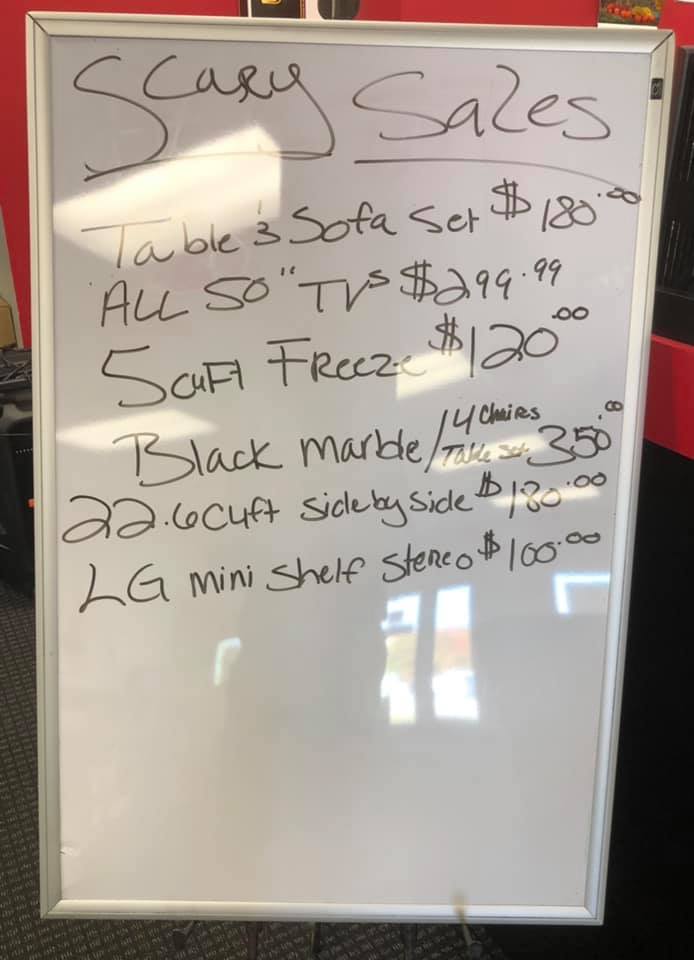 Scary Sales
Table & Sofa Set $180.00
ALL 50" TVs $299.99
5 cuft Freeze $120.00
Black marble / 4 Chaires Table Set 350.00
22.6 cuft side by side $180.00
LG mini shelf stereo $100.00